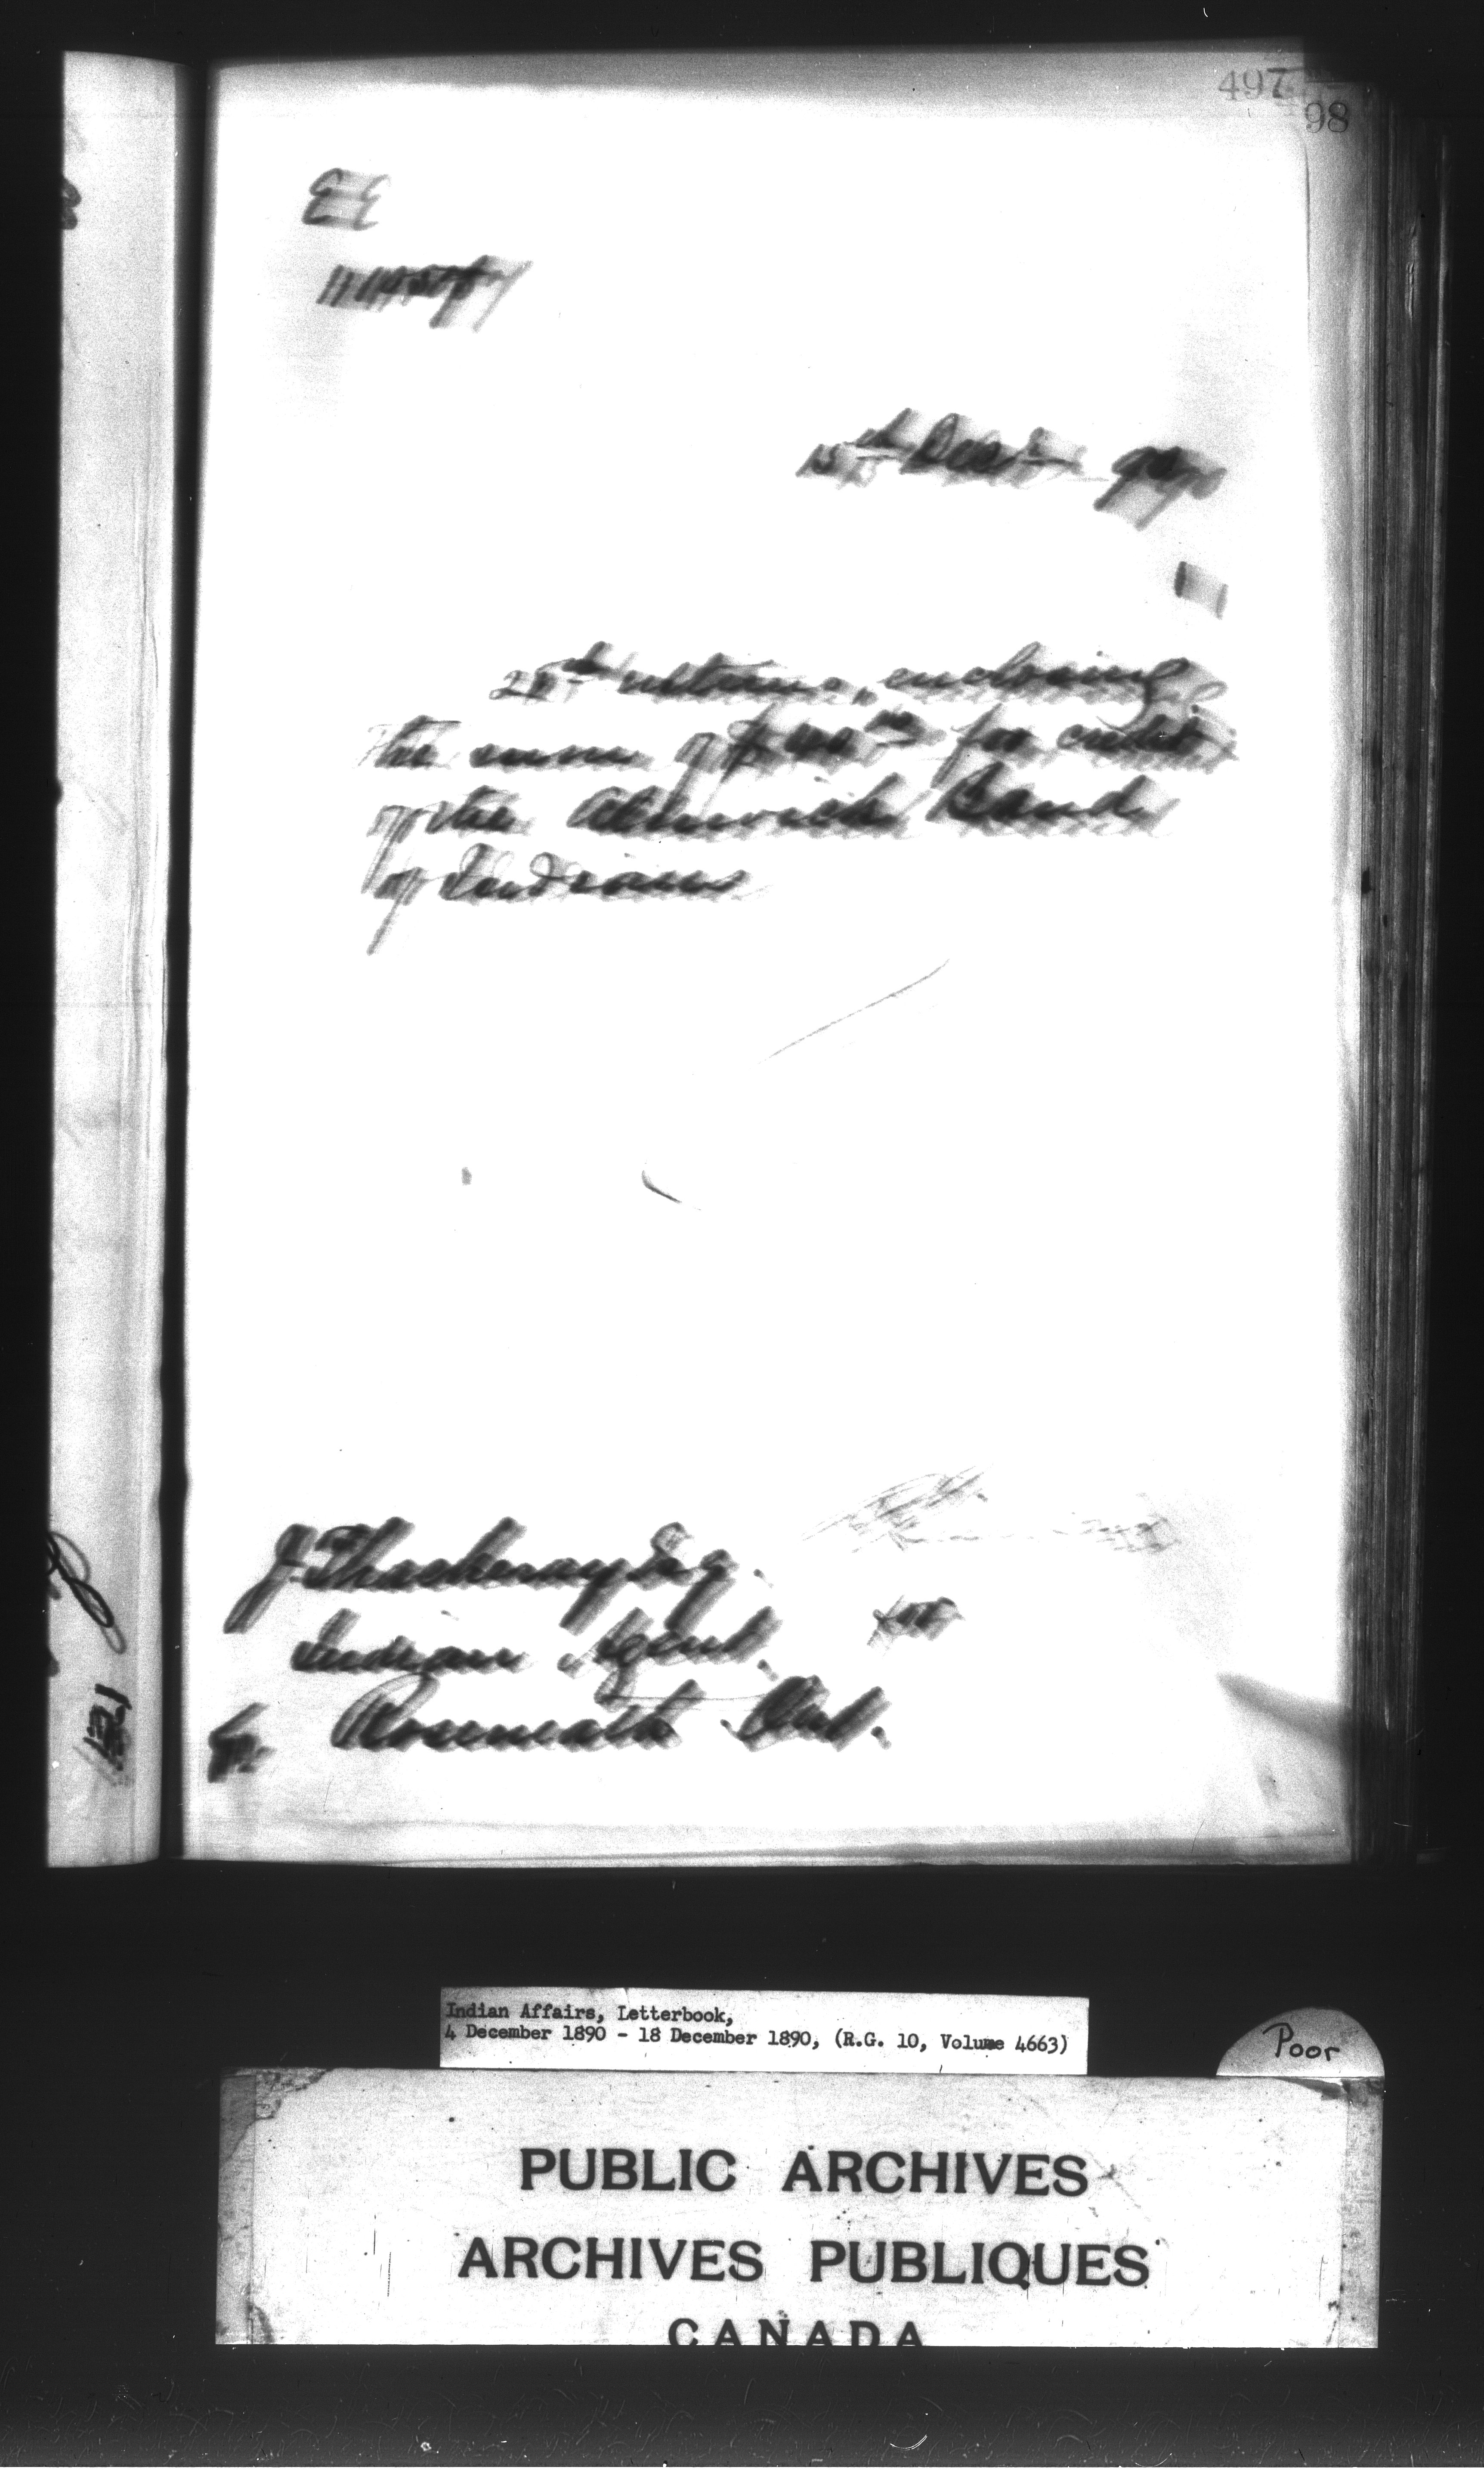 497
98
EE
15th Dec 90
28th ultimo, enclosing
the sum of $ for credit
of the Alnwick Band
of Indians
J. Thackeray Esq.
Indian Agent.
for
Roseneath Ont.
Indian Affairs, Letterbook,
4 December 1890 - 18 December 1890, (R.G. 10, Volume 4663)
Poor
PUBLIC ARCHIVES
ARCHIVES PUBLIQUES
CANADA